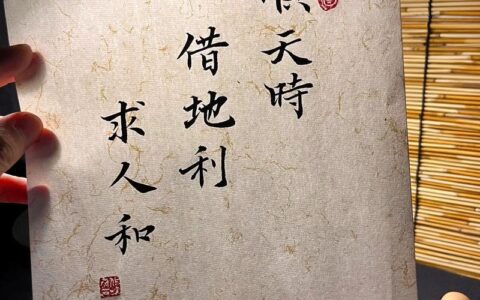 天時
借地利
求人和